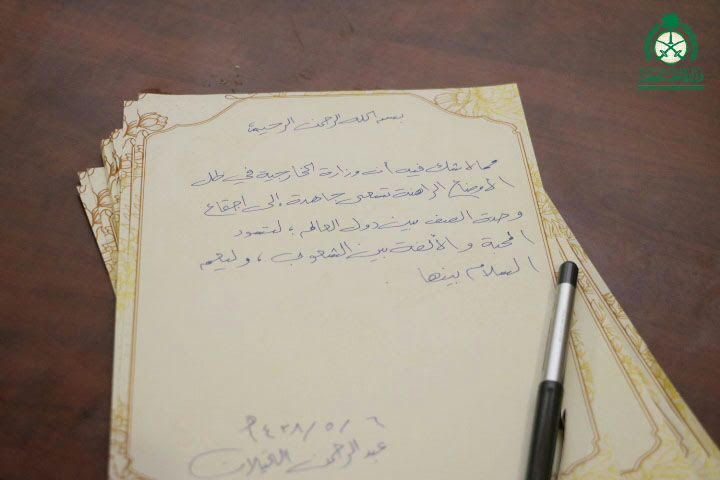 بسم الله الرحمن الرحيم
مما لا شك فيه أن وزارة الخارجية في ظل
الأوضاع الراهنة تسعى جاهدة إلى اجتماع
وحدة الصف بين دول العالم ؛ لتسود
المحبة والألفة بين الشعوب ، وليعم
السلام بينها .
٦ / ٥ / ١٤٣٨ هـ
عبدالرحمن